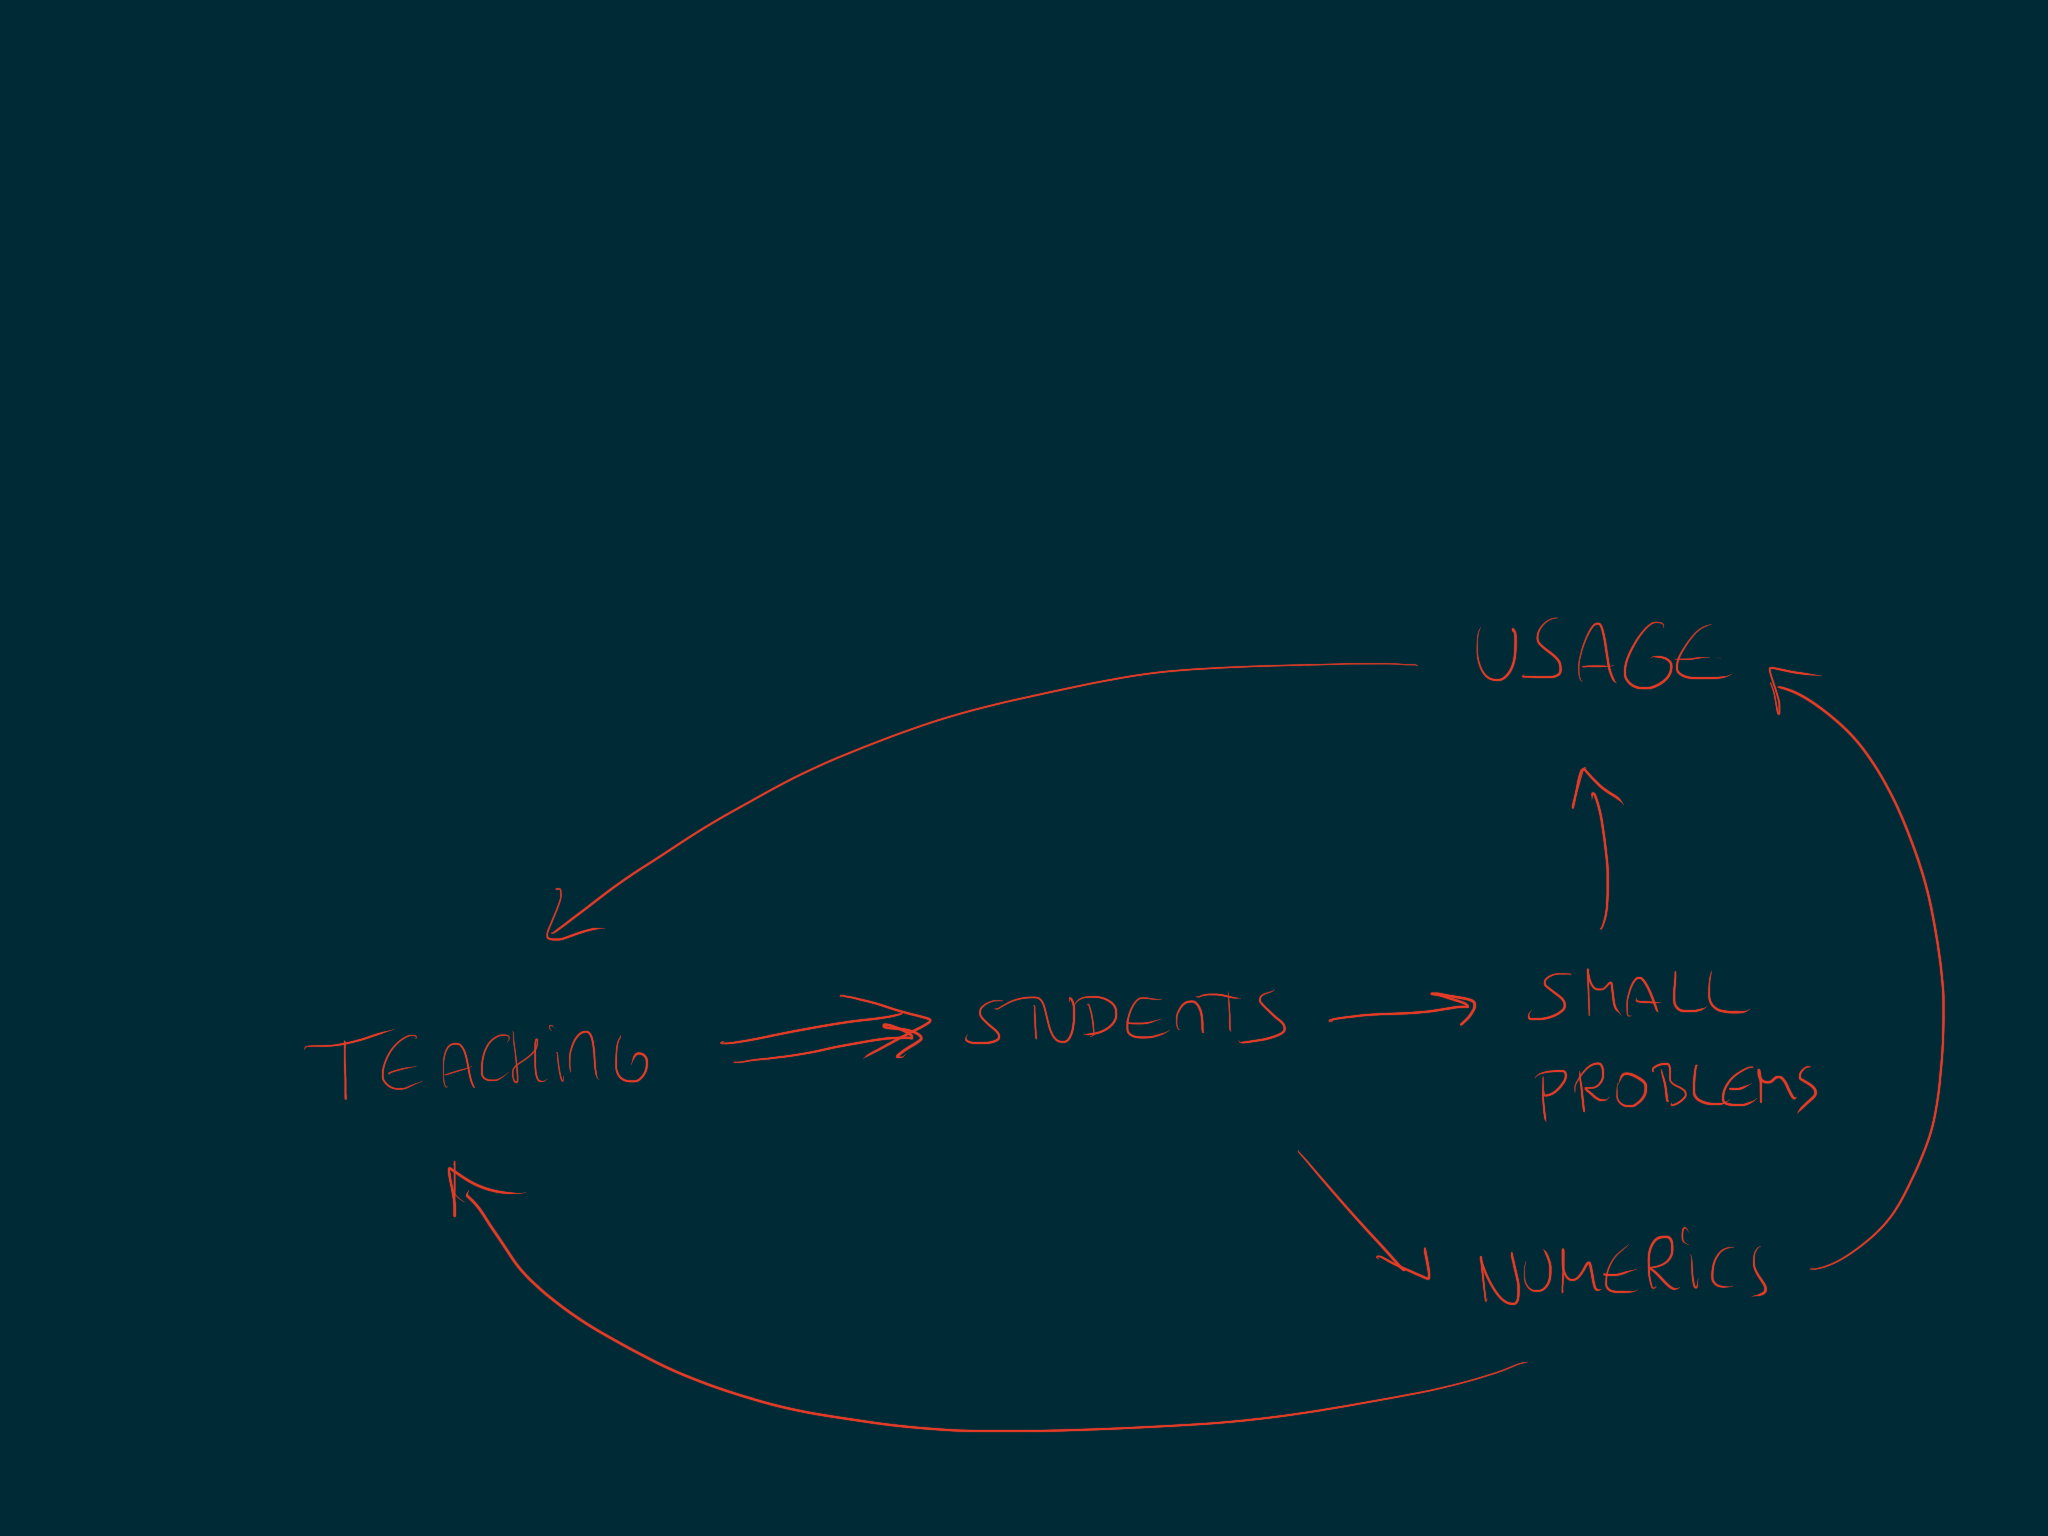 USAGE
TEACHING
STUDENTS
SMALL
PROBLEMS
NUMERICS